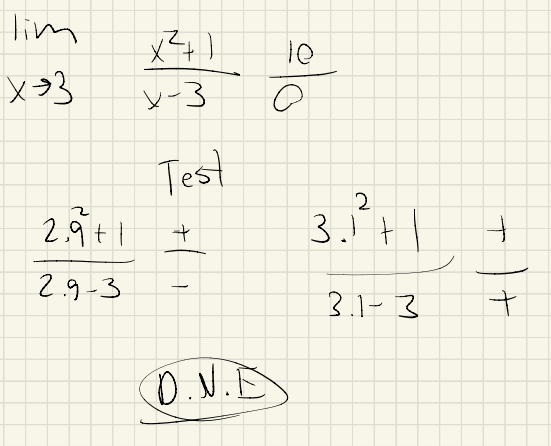 lim x→3 (x²+1)/(x-3) 10/0
Test
(2.9²+1)/(2.9-3) +/- (3.1²+1)/(3.1-3) +/+
D.N.E